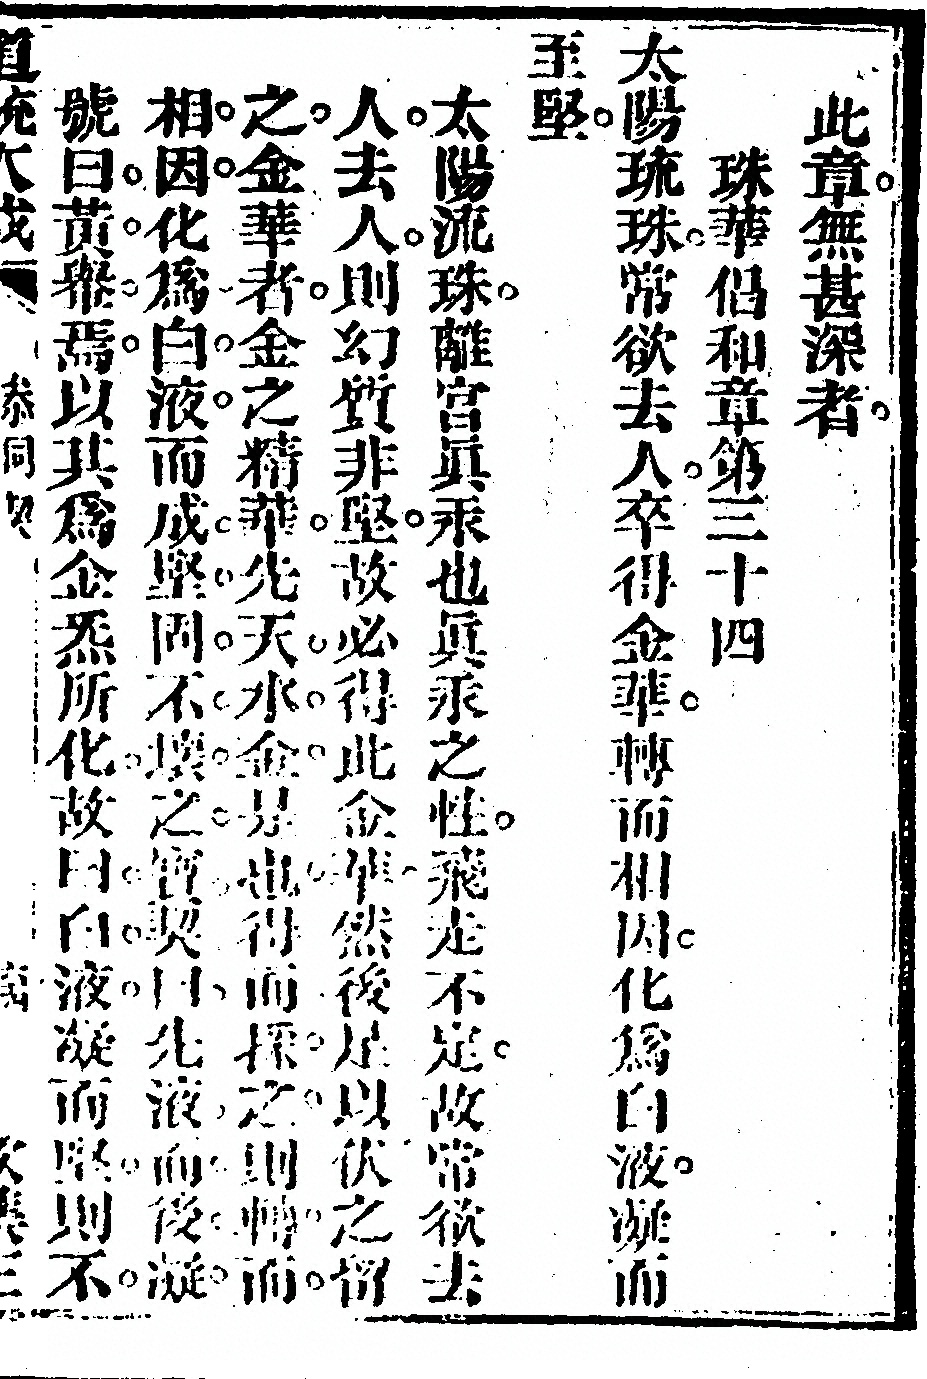 此章無甚深者。
珠華倡和章第三十四
太陽琉珠。常欲去人。卒得金華。轉而相因。化爲白液。凝而
至堅。
太陽流珠。離宮眞汞也眞汞之性。飛走不定。故常欲去
人。去人。則幻質非堅。故必得此金華。然後足以伏之留
之。金華者。金之精華。先天。水。金。是也。得而採。之。則轉。而。
相。因。化爲白。液。而成。堅。固。不。壞。之。寶。契曰。先液。而。後。凝。
號曰。黃。轝。焉。以其爲金炁所化。故曰。白。液。凝而堅。則不。
道統大成
參同契